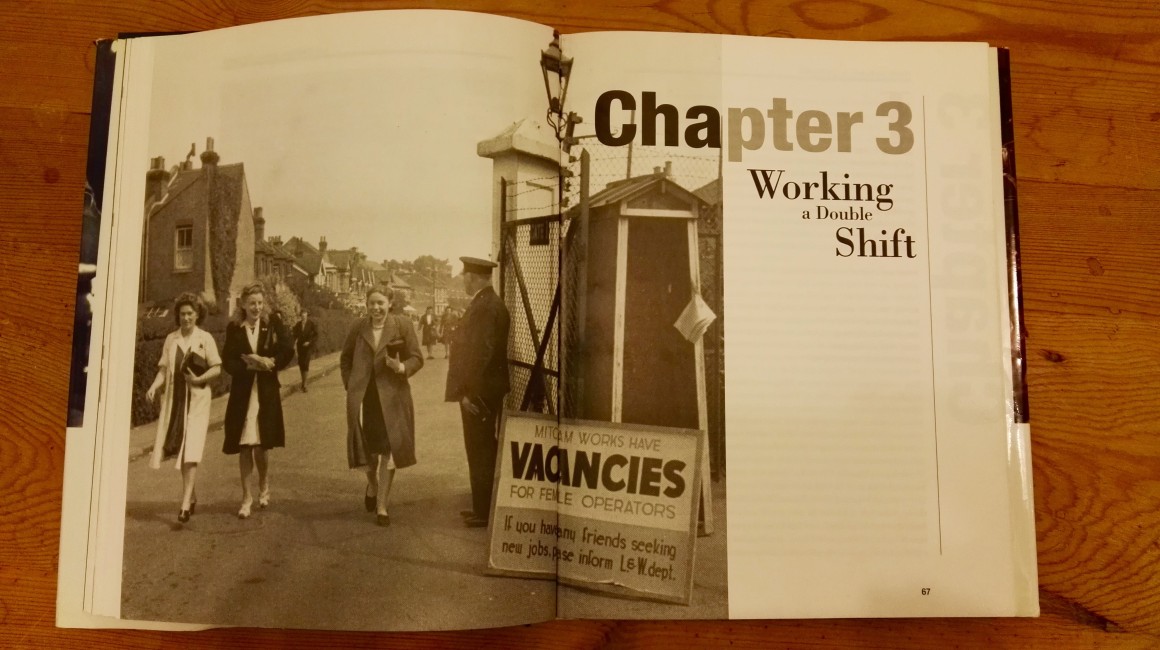 Chapter 3
Working
a Double
Shift
MITCAM WORKS HAVE
VACANCIES
FOR FEMLE OPERATORS
If you have any friends seeking
new jobs, pase inform L&W.dept.
67